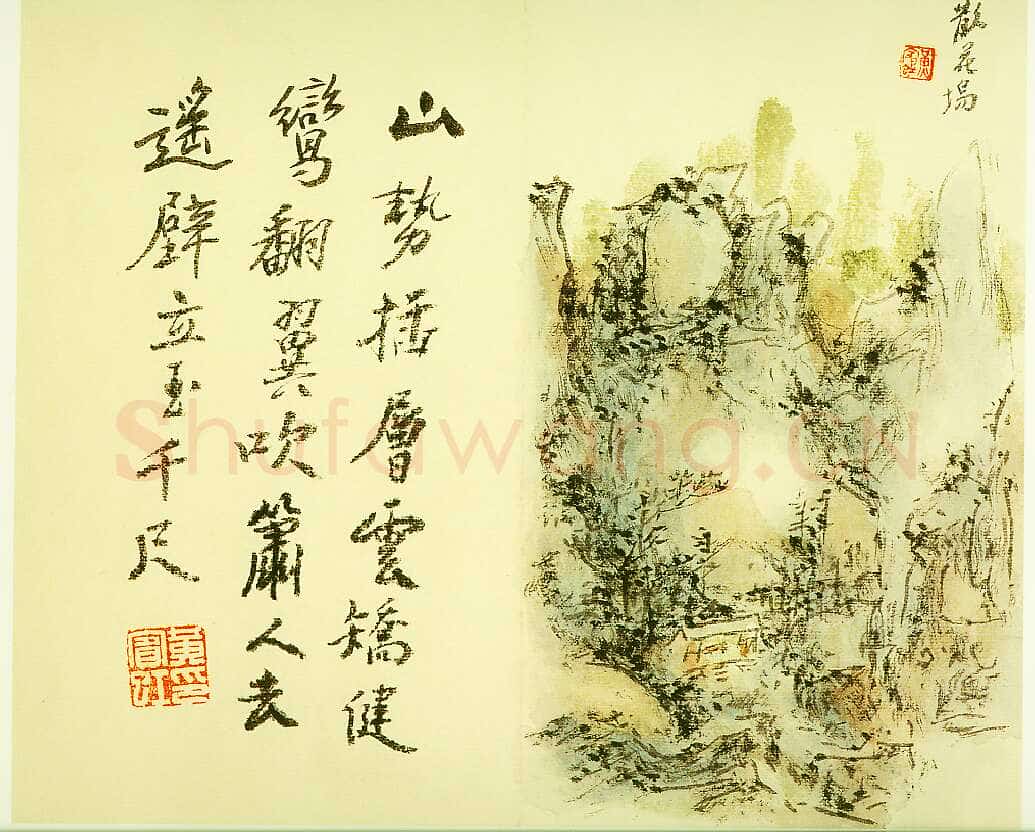 散花塢
山勢插層雲矯健
鸞翻翼吹簫人去
遙壁立玉千尺
黃印賓虹
Shufawang.CN